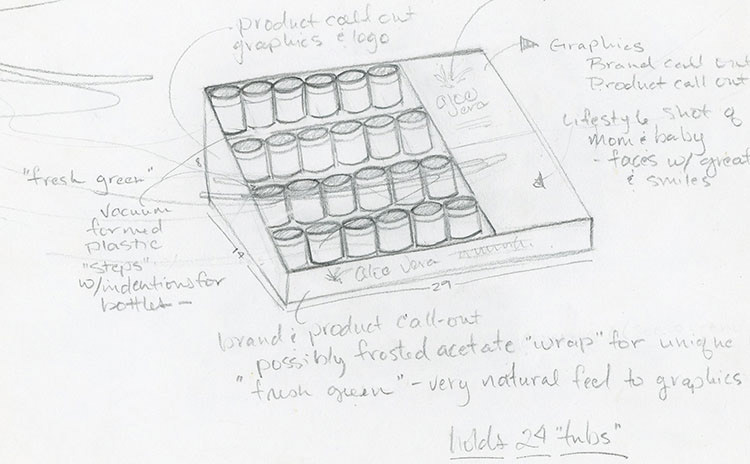 product call out
graphics & logo
Graphics
Brand call out
Product call out
Lifestyle shot of
mom & baby
- faces w/ great
& smiles
aloe
vera
"fresh green"
vacuum
formed
plastic
"steps"
w/indentions for
bottles -
14
aloe vera
29
brand & product call-out
possibly frosted acetate "wrap" for unique
"fresh green" - very natural feel to graphics
holds 24 "tubs"